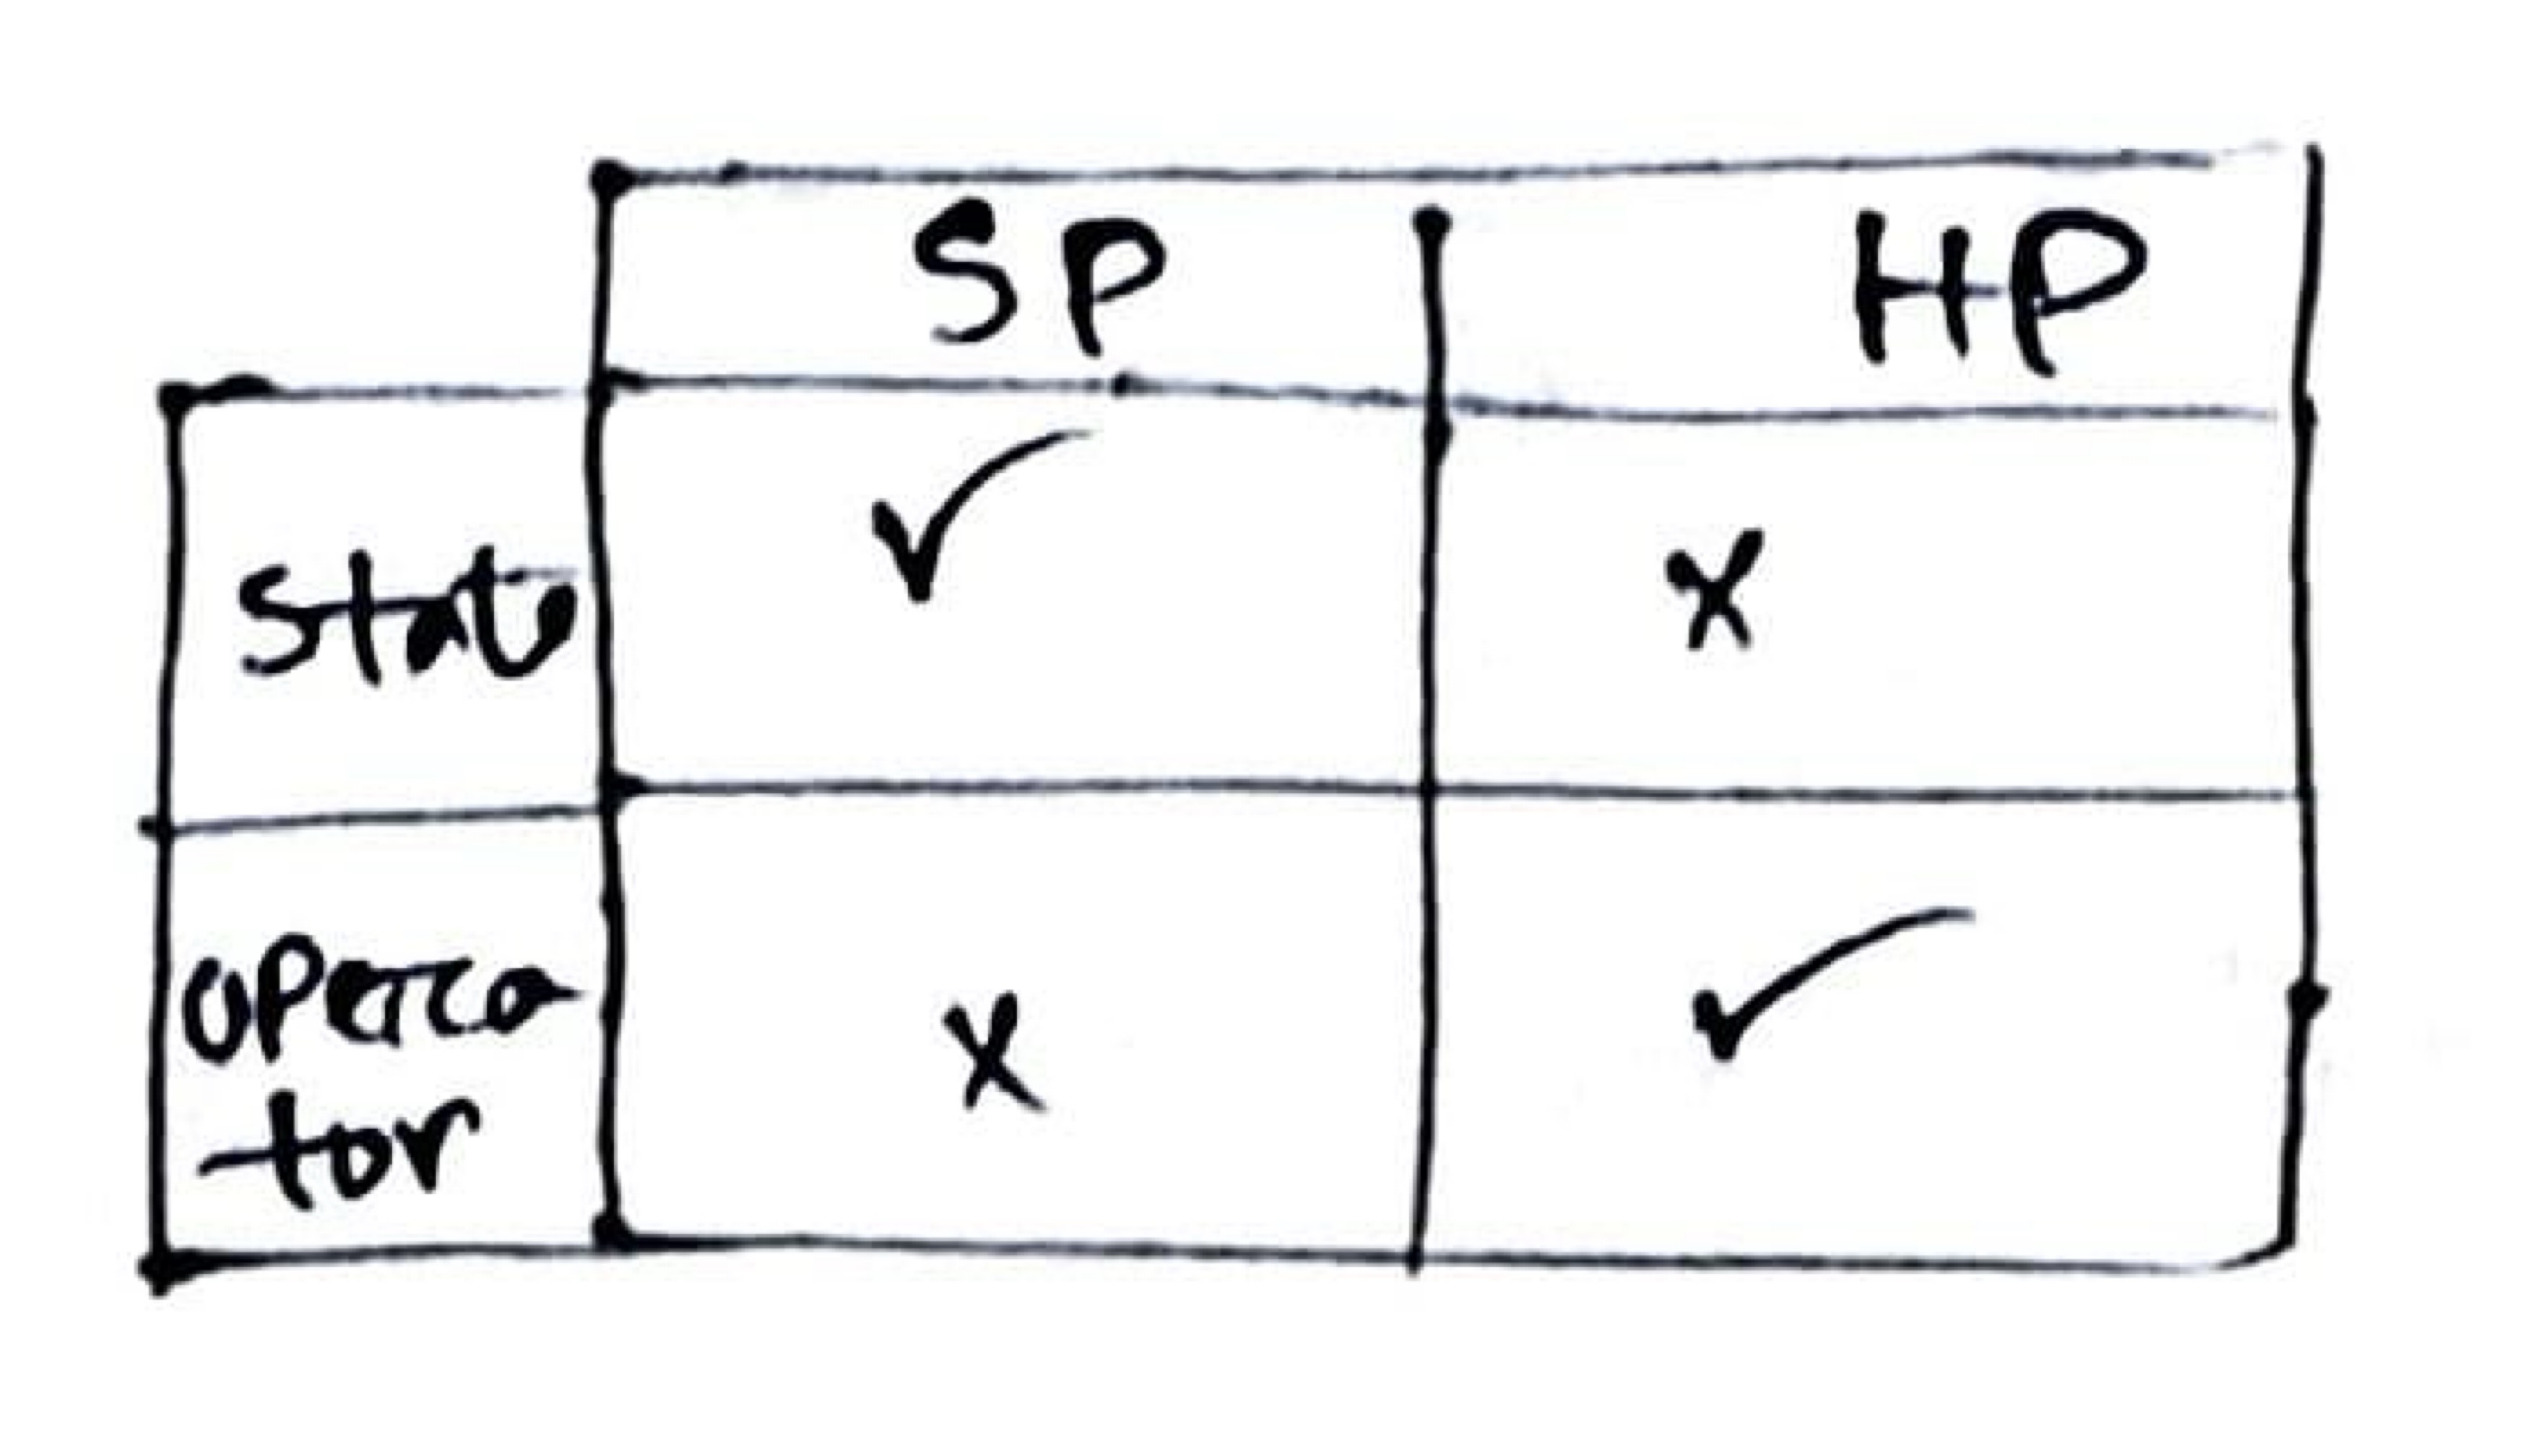 SP HP
State ✓ x
opera
-tor x ✓